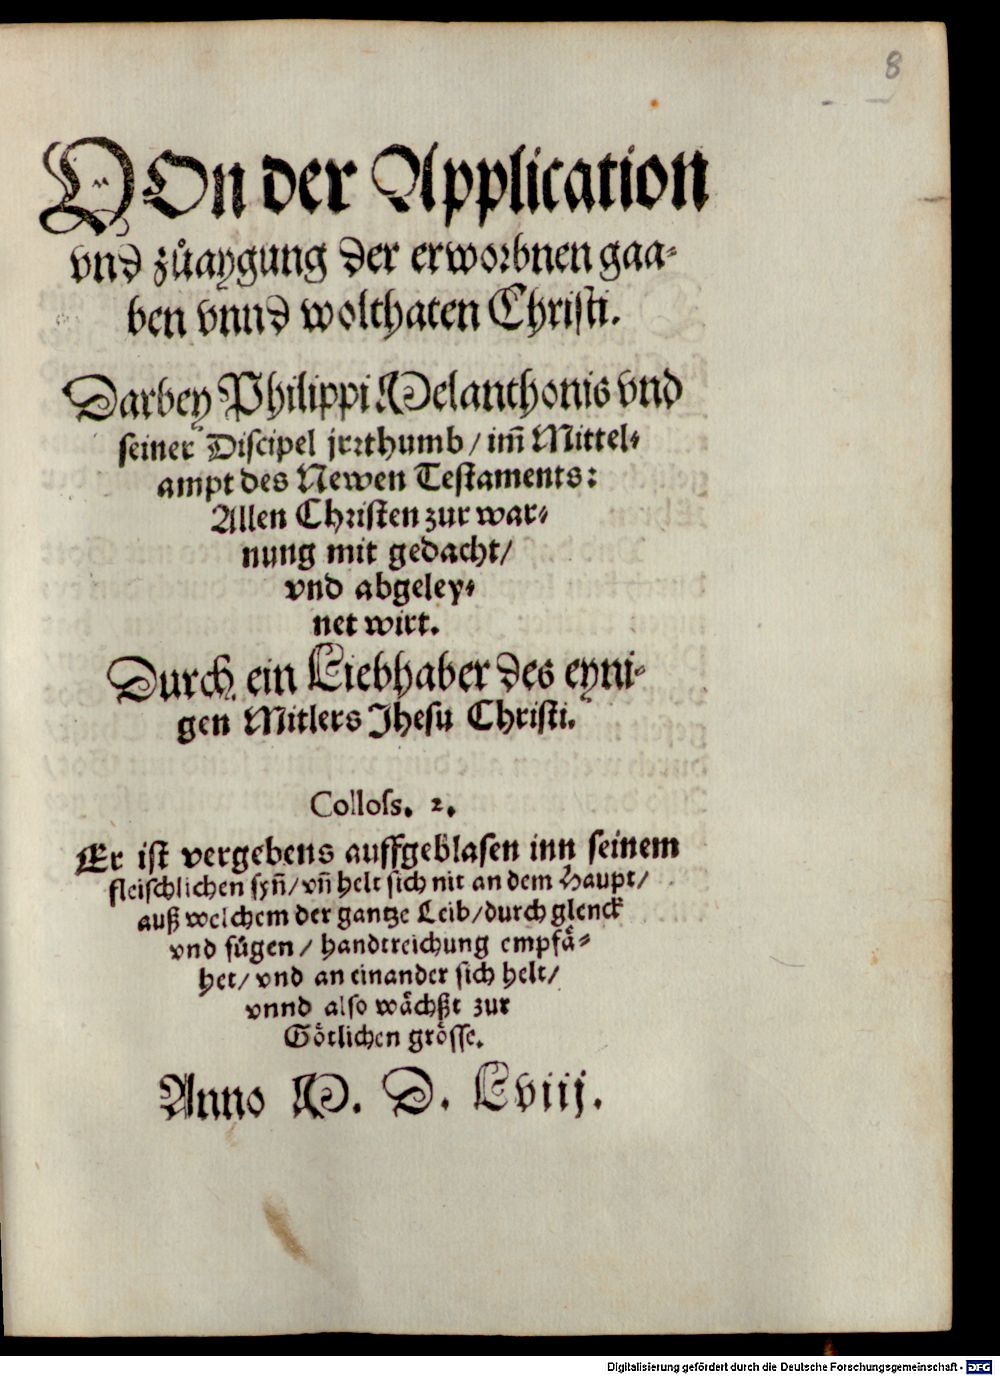 8
VOn der Application
vnd zůaygung der erworbnen gaa⸗
ben vnnd wolthaten Christi.
Darbey Philippi Melanthonis vnd
seiner Discipel jrrthumb / im̃ Mittel⸗
ampt des Newen Testaments:
Allen Christen zur war⸗
nung mit gedacht/
vnd abgeley⸗
net wirt.
Durch ein Liebhaber des eyni⸗
gen Mitlers Jhesu Christi.
Colloſs. 2.
Er ist vergebens auffgeblasen inn seinem
fleischlichen syñ/ vñ helt sich nit an dem Haupt/
auß welchem der gantze Leib/ durch glenck
vnd fügen / handtreichung empfå⸗
het/ vnd an einander sich helt/
vnnd also wåchßt zur
Götlichen grösse.
Anno M. D. Lviij.
Digitalisierung gefördert durch die Deutsche Forschungsgemeinschaft - DFG